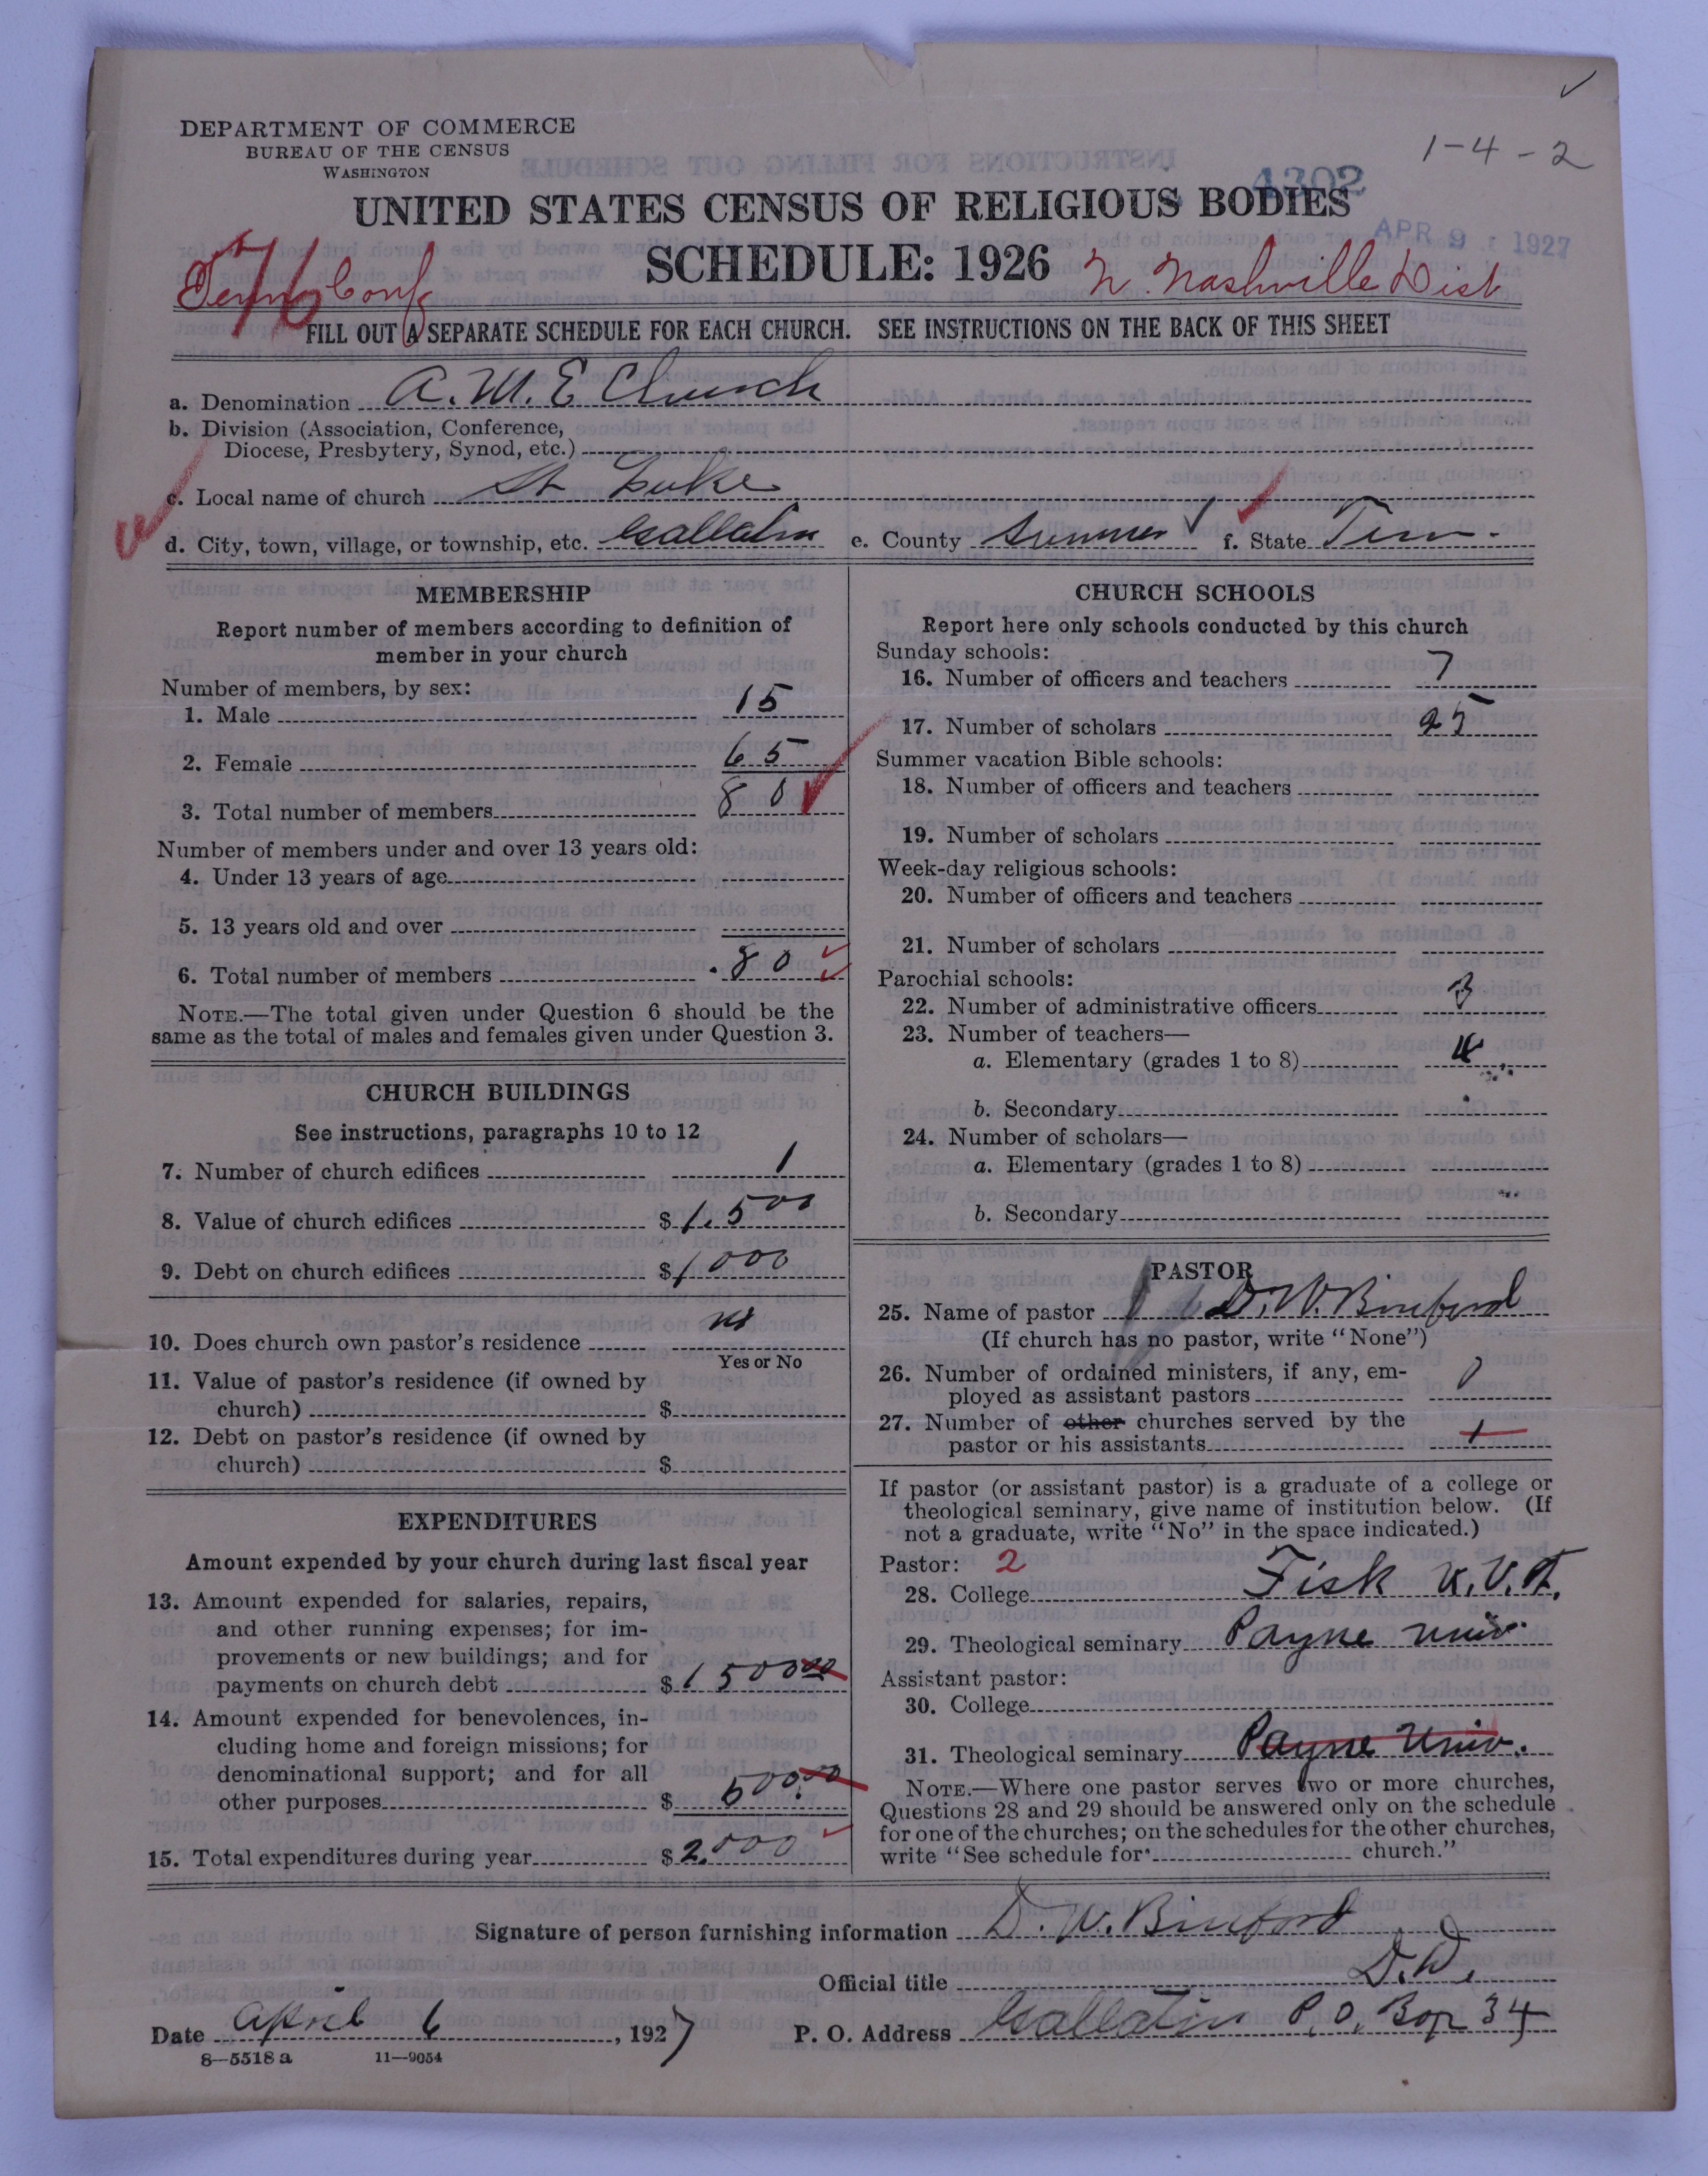 DEPARTMENT OF COMMERCE
BUREAU OF THE CENSUS
WASHINGTON
1-4-2
4302
UNITED STATES CENSUS OF RELIGIOUS BODIES
APR 9 1927
SCHEDULE: 1926
Tenn Conf
N. Nashville Dist
FILL OUT A SEPARATE SCHEDULE FOR EACH CHURCH. SEE INSTRUCTIONS ON THE BACK OF THIS SHEET
a. Denomination A. M. E Church
b. Division (Association, Conference,
Diocese, Presbytery, Synod, etc.)
c. Local name of church St Luke
d. City, town, village, or township, etc. Gallatin e. County Sumner f. State Tenn.
MEMBERSHIP
Report number of members according to definition of
member in your church
Number of members, by sex:
1. Male 15
2. Female 65
3. Total number of members 80
Number of members under and over 13 years old:
4. Under 13 years of age
5. 13 years old and over
6. Total number of members 80
NOTE.—The total given under Question 6 should be the
same as the total of males and females given under Question 3.
CHURCH BUILDINGS
See instructions, paragraphs 10 to 12
7. Number of church edifices 1
8. Value of church edifices $1,500
9. Debt on church edifices $1000
10. Does church own pastor's residence
Yes or No
11. Value of pastor's residence (if owned by
church) $
12. Debt on pastor's residence (if owned by
church) $
EXPENDITURES
Amount expended by your church during last fiscal year
13. Amount expended for salaries, repairs,
and other running expenses; for im-
provements or new buildings; and for
payments on church debt $1500 00
14. Amount expended for benevolences, in-
cluding home and foreign missions; for
denominational support; and for all
other purposes $ 500.00
15. Total expenditures during year $2,000
CHURCH SCHOOLS
Report here only schools conducted by this church
Sunday schools:
16. Number of officers and teachers 7
17. Number of scholars 25
Summer vacation Bible schools:
18. Number of officers and teachers
19. Number of scholars
Week-day religious schools:
20. Number of officers and teachers
21. Number of scholars
Parochial schools:
22. Number of administrative officers 3
23. Number of teachers—
a. Elementary (grades 1 to 8) 4
b. Secondary
24. Number of scholars—
a. Elementary (grades 1 to 8)
b. Secondary
PASTOR
25. Name of pastor D. W. Binford
(If church has no pastor, write "None")
26. Number of ordained ministers, if any, em-
ployed as assistant pastors 0
27. Number of other churches served by the
pastor or his assistants 1
If pastor (or assistant pastor) is a graduate of a college or
theological seminary, give name of institution below. (If
not a graduate, write "No" in the space indicated.)
Pastor: 2
28. College Fisk
29. Theological seminary Payne Univ.
Assistant pastor:
30. College
31. Theological seminary Payne Univ.
NOTE.—Where one pastor serves two or more churches,
Questions 28 and 29 should be answered only on the schedule
for one of the churches; on the schedules for the other churches,
write "See schedule for church."
Signature of person furnishing information D. W. Binford
Official title D. D.
Date April 6, 1927 P. O. Address Gallatin P. O. Box 34
8—5518 a 11—9054